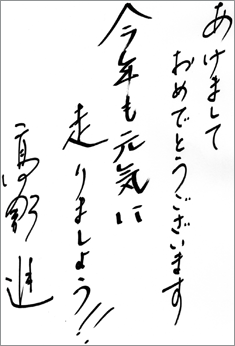 あけまして
おめでとうございます
今年も元気に
走りましょう!!
高野進